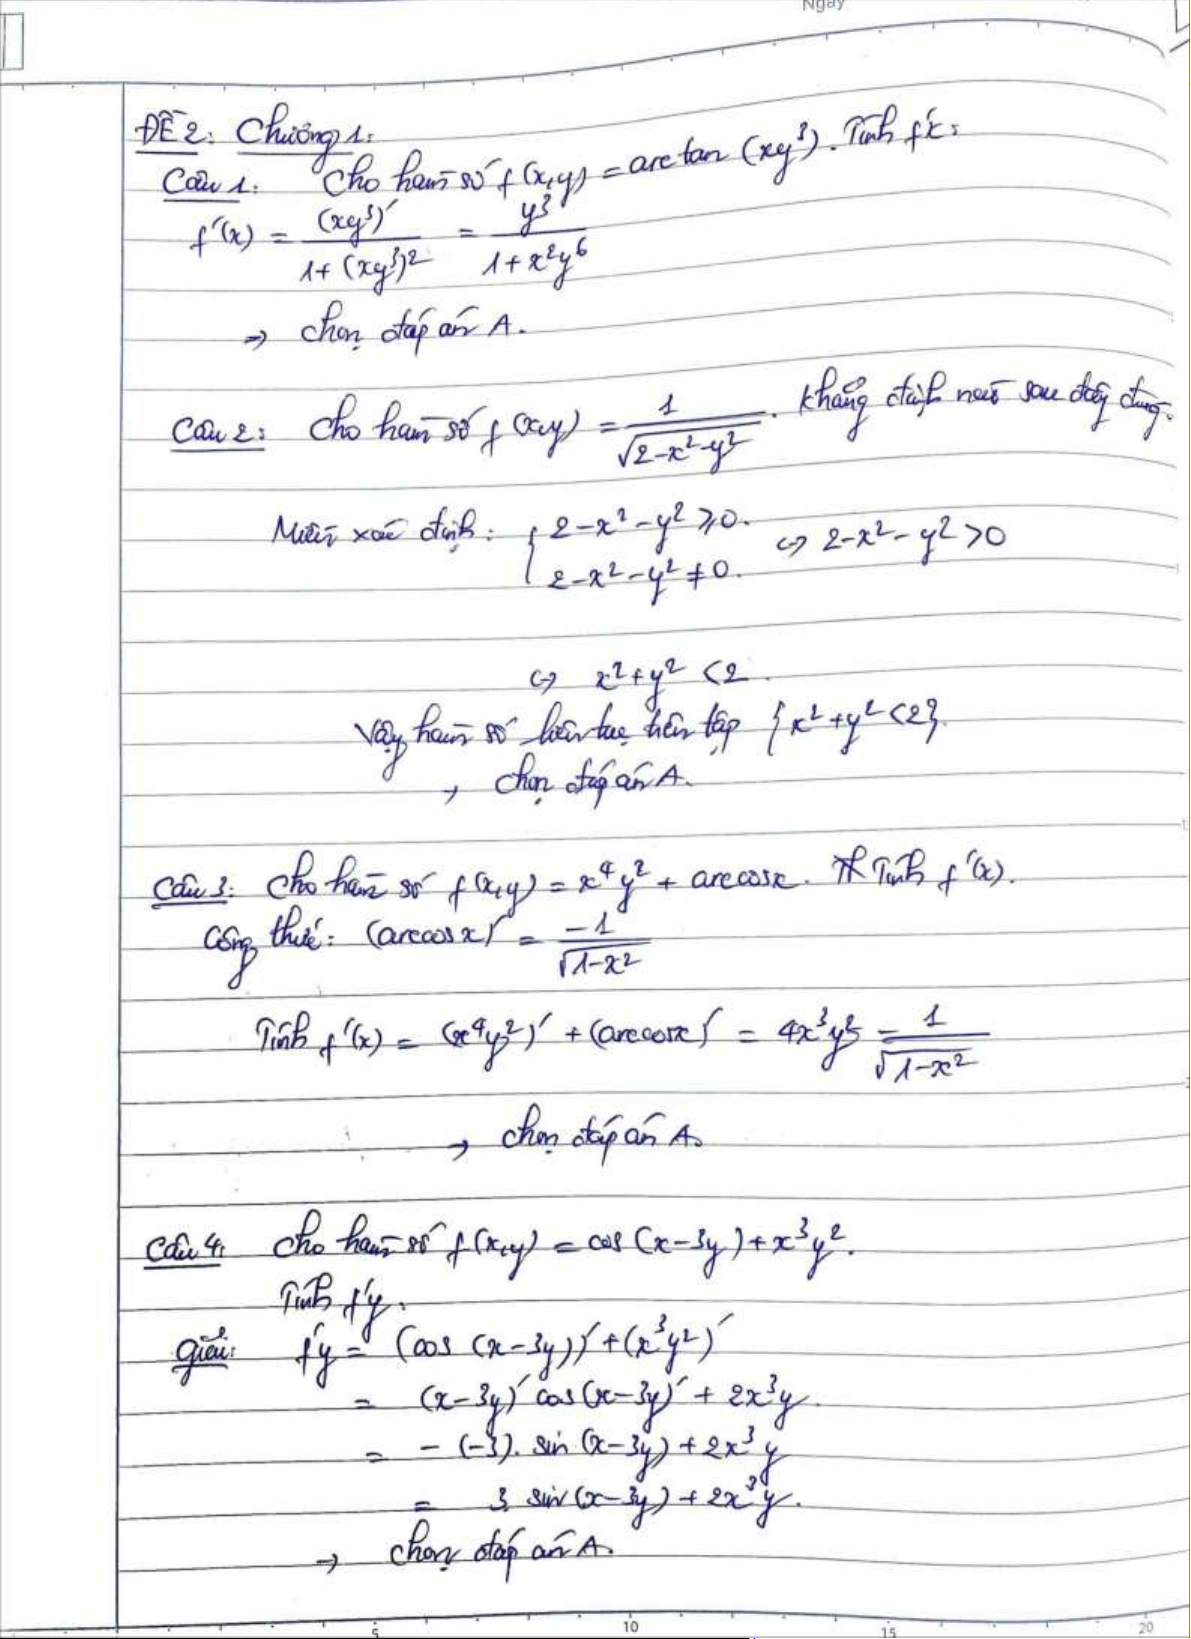 Ngày
ĐỀ 2: Chương 1:
Câu 1: Cho hàm số f(x,y) = arctan (xy³). Tính f'x:
f'(x) = (xy³)' / (1+(xy³)²) = y³ / (1+x²y⁶)
→ chọn đáp án A.
Câu 2: Cho hàm số f(x,y) = 1/√(2-x²-y²). Khẳng định nào sau đây đúng.
Miền xác định: { 2-x²-y² ≥ 0. ⇔ 2-x²-y² > 0
2-x²-y² ≠ 0.
⇔ x²+y² < 2.
Vậy hàm số liên tục trên tập {x²+y² < 2}.
→ chọn đáp án A.
Câu 3: Cho hàm số f(x,y) = x⁴y² + arccosx. Tính f'(x).
Công thức: (arccosx)' = -1/√(1-x²)
Tính f'(x) = (x⁴y²)' + (arccosx)' = 4x³y² - 1/√(1-x²)
→ chọn đáp án A.
Câu 4: Cho hàm số f(x,y) = cos(x-3y)+x³y².
Tính f'y.
Giải: f'y = (cos (x-3y))' + (x³y²)'
= (x-3y)' cos(x-3y)' + 2x³y.
= -(-3). sin (x-3y) + 2x³y
= 3 sin(x-3y) + 2x³y.
→ chọn đáp án A.
5 10 15 20